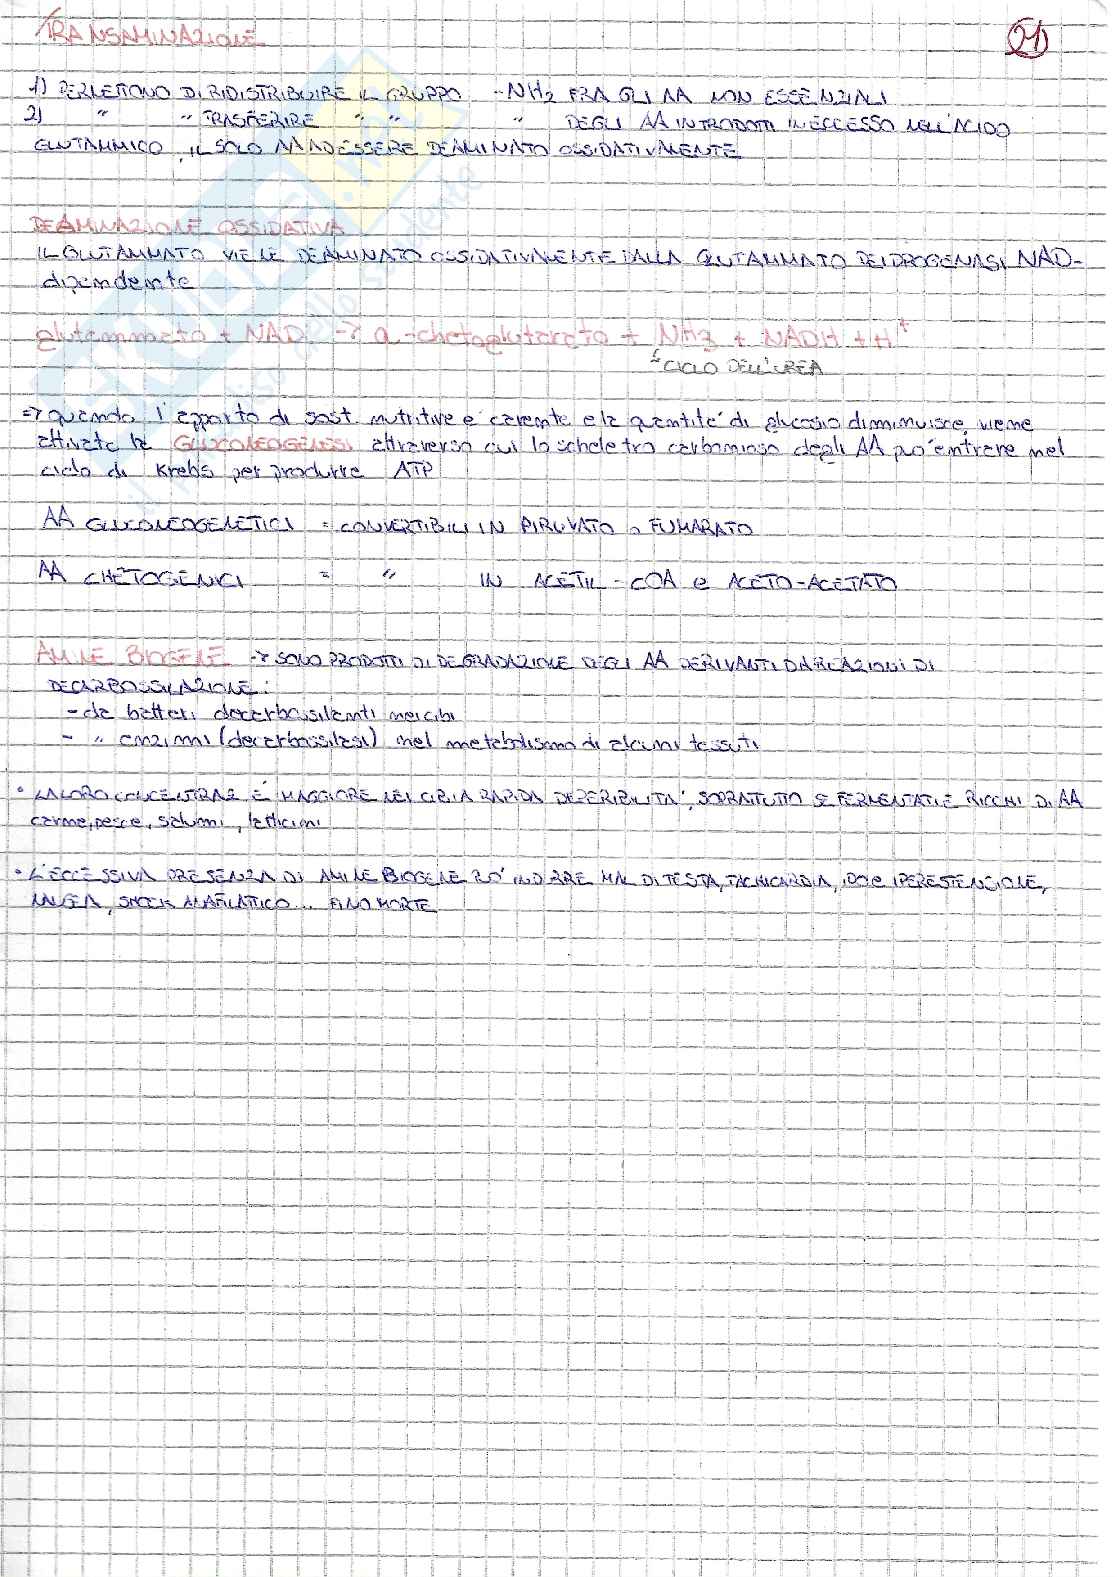 TRANSAMINAZIONE
21
1) PERMETTONO DI RIDISTRIBUIRE IL GRUPPO -NH2 FRA GLI AA NON ESSENZIALI
2) " " TRASFERIRE " " " DEGLI AA INTRODOTTI IN ECCESSO NELL'ACIDO
GLUTAMMICO, IL SOLO AA AD ESSERE DEAMINATO OSSIDATIVAMENTE
DEAMINAZIONE OSSIDATIVA
IL GLUTAMMATO VIENE DEAMINATO OSSIDATIVAMENTE DALLA GLUTAMMATO DEIDROGENASI NAD-
dipendente
glutammato + NAD → α-chetoglutarato + NH3 + NADH + H+
↳ CICLO DELL'UREA
=> quando l'apporto di sost. nutritive e' carente e la quantita' di glucosio dimminuisce, viene
attivata la GLUCONEOGENESI attraverso cui lo scheletro carbonioso degli AA puo' entrare nel
ciclo di Krebs per produrre ATP
AA GLUCONEOGENETICI = CONVERTIBILI IN PIRUVATO o FUMARATO
AA CHETOGENICI = " IN ACETIL-COA e ACETO-ACETATO
AMINE BIOGENE → SONO PRODOTTI DI DEGRADAZIONE DEGLI AA DERIVANTI DA REAZIONI DI
DECARBOSSILAZIONE:
- da batteri decarbossilanti nei cibi
- " enzimi (decarbossilasi) nel metabolismo di alcuni tessuti
• LA LORO CONCENTRAZ E' MAGGIORE NEI CIBI A RAPIDA DEPERIBILITA', SOPRATTUTTO SE FERMENTATI E RICCHI DI AA
carne, pesce, salumi, latticini
• L'ECCESSIVA PRESENZA DI AMINE BIOGENE PUO' INDURRE MAL DI TESTA, TACHICARDIA, IPO e IPERESTENSIONE,
NAUSEA, SHOCK ANAFILATTICO... FINO MORTE